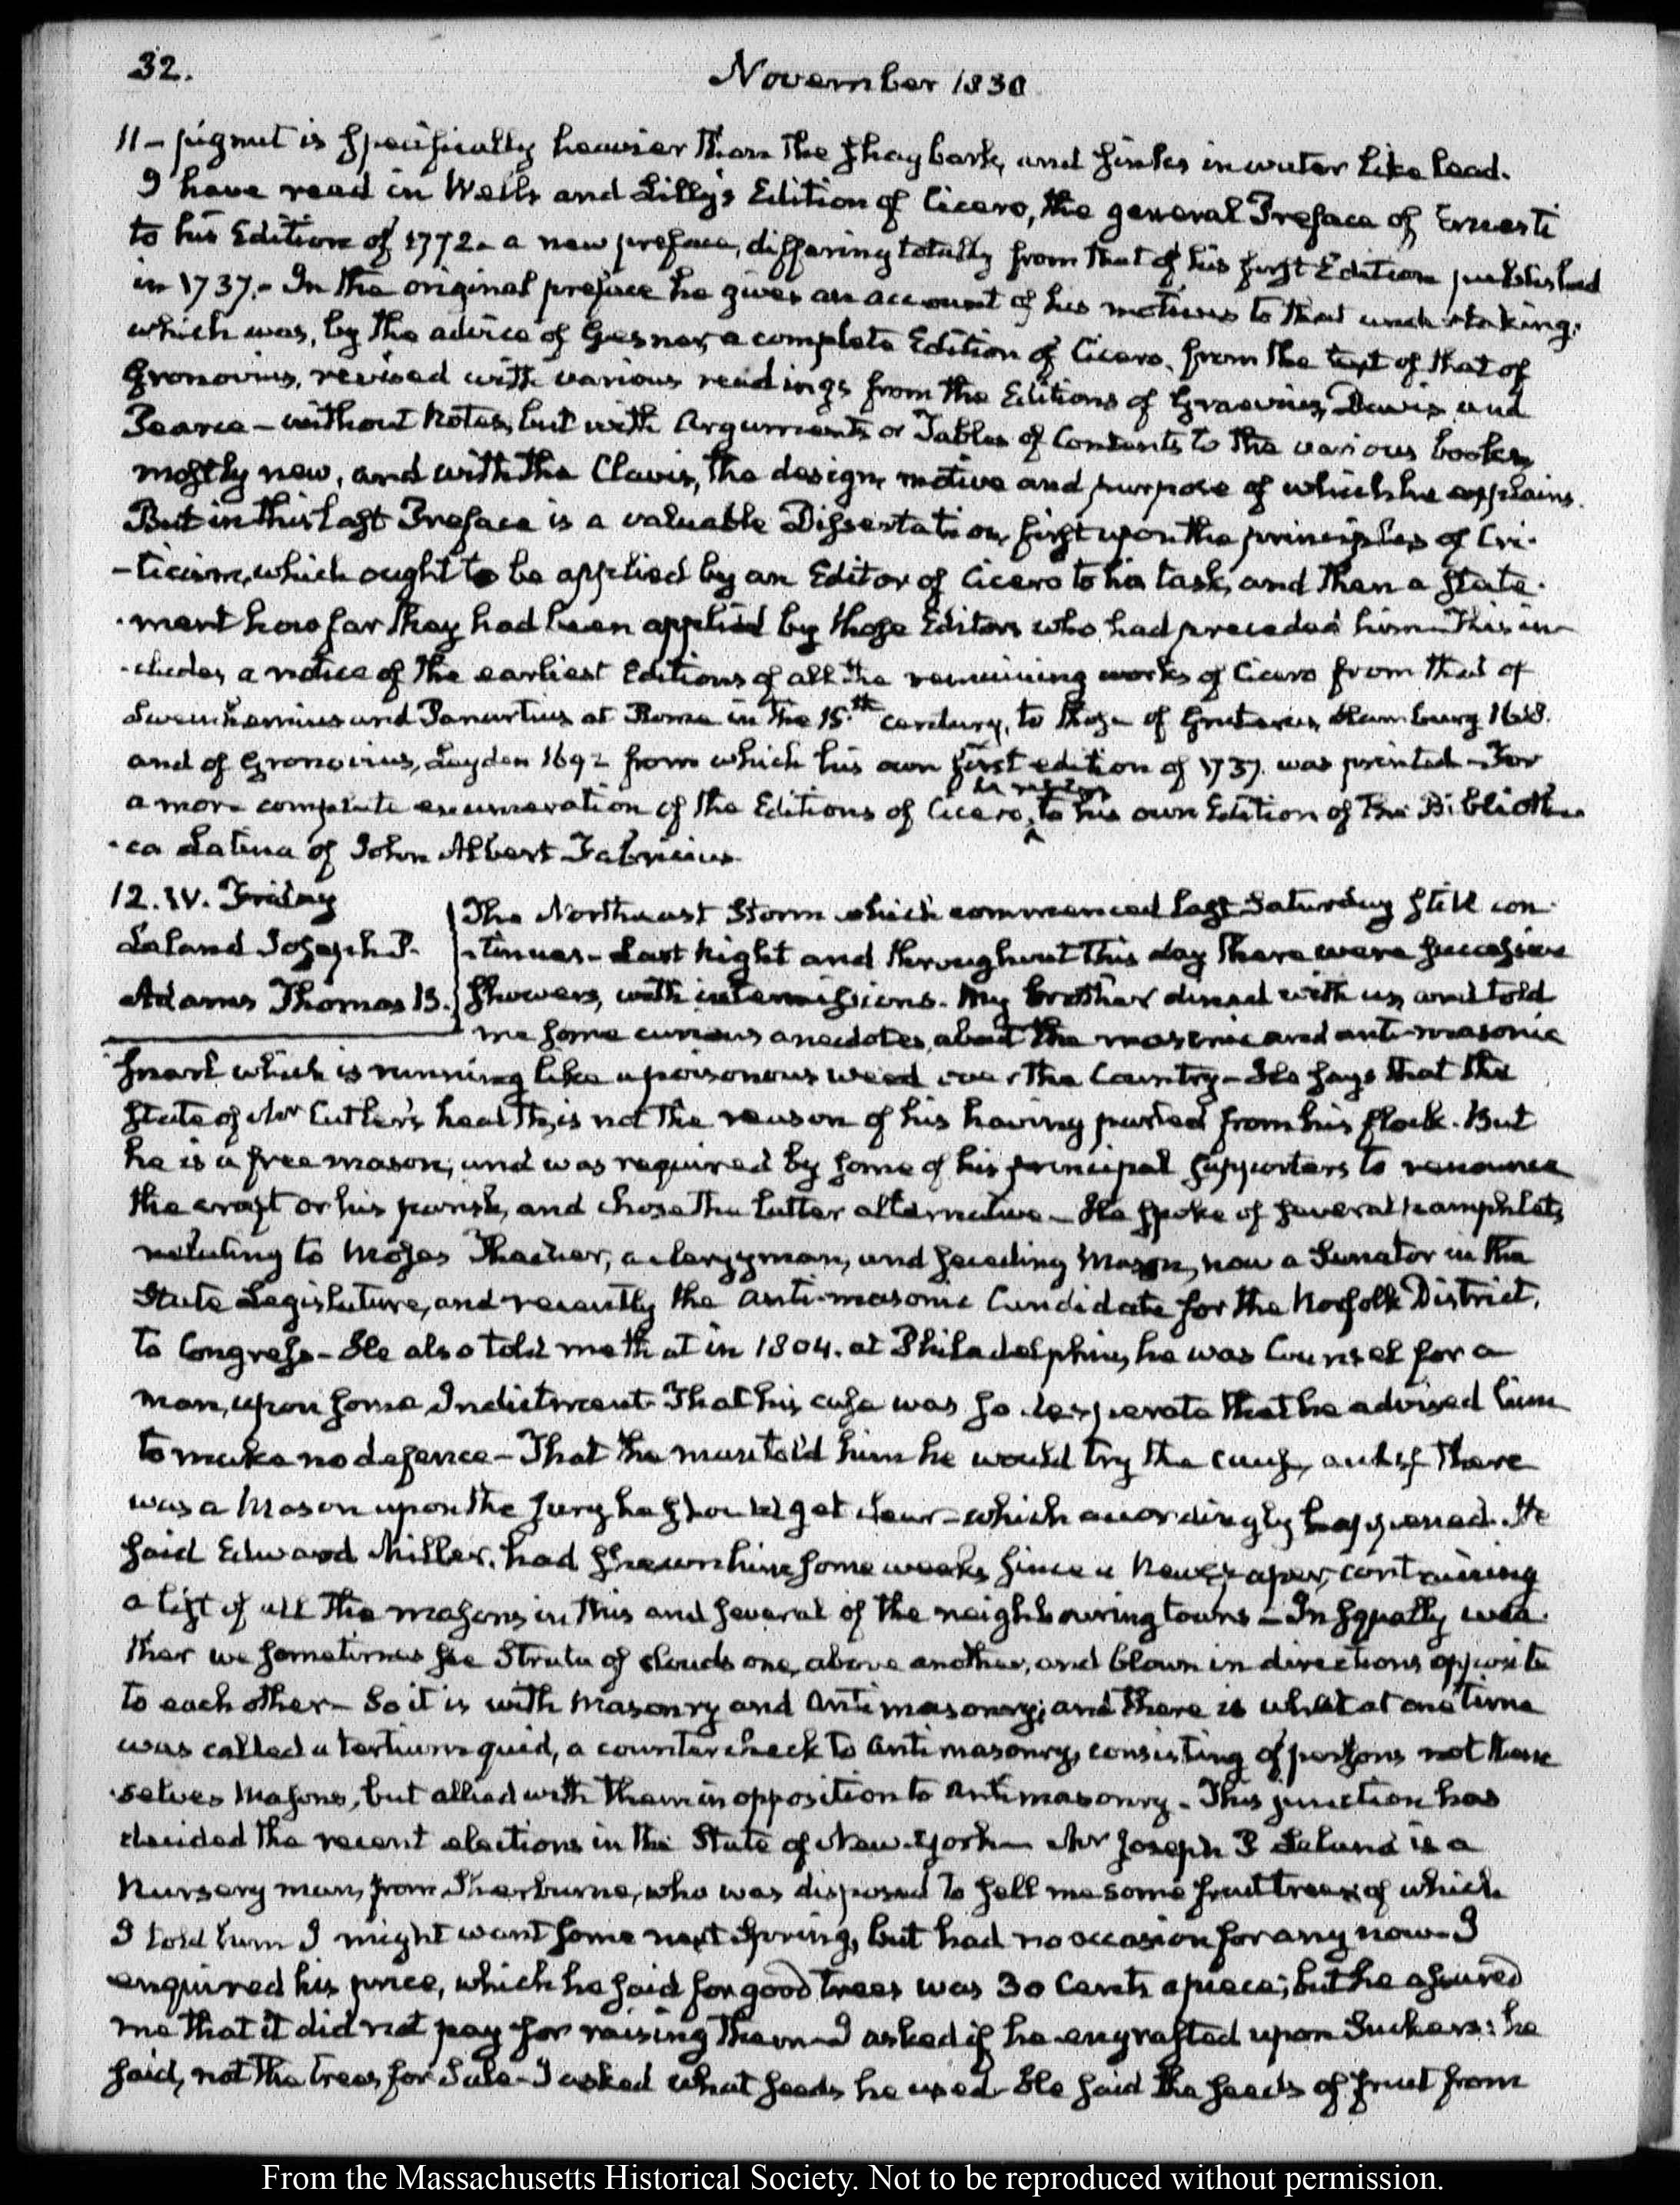 32.
November 1830
11 — pignut is specifically heavier than the shagbark, and sinks in water like lead.
I have read in Wells and Lilly's Edition of Cicero, the general Preface of Ernesti
to his Edition of 1772. a new preface, differing totally from that of his first Edition published
in 1737.— In the original preface he gives an account of his motives to that undertaking;
which was, by the advice of Gesner, a complete Edition of Cicero. from the text of that of
Gronovius, revised with various readings from the Editions of Graevius, Davis and
Pearce — without Notes, but with Arguments or Tables of Contents to the various books,
mostly new, and with the Clavis, the design, motive and purpose of which he explains.
But in this last Preface is a valuable Dissertation, first upon the principles of Cri-
-ticism, which ought to be applied by an Editor of Cicero to his task, and then a state-
-ment how far they had been applied by those Editors who had preceded him — This in-
-cludes a notice of the earliest Editions of all the remaining works of Cicero from that of
Sweynhemius and Panartius at Rome in the 15.th century, to those of Gruterus, Hamburg 1618.
and of Gronovius, Leyden 1692 from which his own first edition of 1737. was printed — For
a more complete enumeration of the Editions of Cicero, he refers to his own Edition of the Biblioth-
-ca Latina of John Albert Fabricius.
12. IV. Friday
Leland Joseph P.
Adams Thomas B.
The Northeast Storm which commenced last Saturday still con-
-tinues — Last Night and throughout this day there were successive
showers, with intermissions. My brother dined with us, and told
me some curious anecdotes, about the masonic and anti-masonic
snarl which is running like a poisonous weed over the Country — He says that the
state of Mr Cutler's health, is not the reason of his having parted from his flock. But
he is a free mason, and was required by some of his principal supporters to renounce
the craft or his parish, and chose the latter alternative — He spoke of several pamphlets,
relating to Moses Thacher, a clergyman, and seceding Mason, now a Senator in the
State Legislature, and recently the anti-masonic Candidate for the Norfolk District,
to Congress — He also told me that in 1804. at Philadelphia, he was Counsel for a
man, upon some Indictment. That his case was so desperate that he advised him
to make no defence — That the man told him he would try the cause, and if there
was a Mason upon the Jury he should get clear — which accordingly happened. He
said Edward Miller, had shewn him some weeks since a Newspaper, containing
a list of all the masons in this and several of the neighbouring towns — In squally wea-
ther we sometimes see Strata of clouds one, above another, and blown in directions opposite
to each other — So it is with Masonry and Antimasonry; and there is what at one time
was called a tertium quid, a countercheck to antimasonry, consisting of persons not them-
-selves Masons, but allied with them in opposition to Antimasonry — This junction has
decided the recent elections in the State of New-York — Mr Joseph P Leland is a
Nursery man, from Sherburne, who was disposed to sell me some fruit trees; of which
I told him I might want some next Spring, but had no occasion for any now — I
enquired his price, which he said for good trees was 30 Cents apiece; but he assured
me that it did not pay for raising them — I asked if he engrafted upon Suckers: he
said, not the trees for Sale — I asked what seeds he used — He said the seeds of fruit from
From the Massachusetts Historical Society. Not to be reproduced without permission.